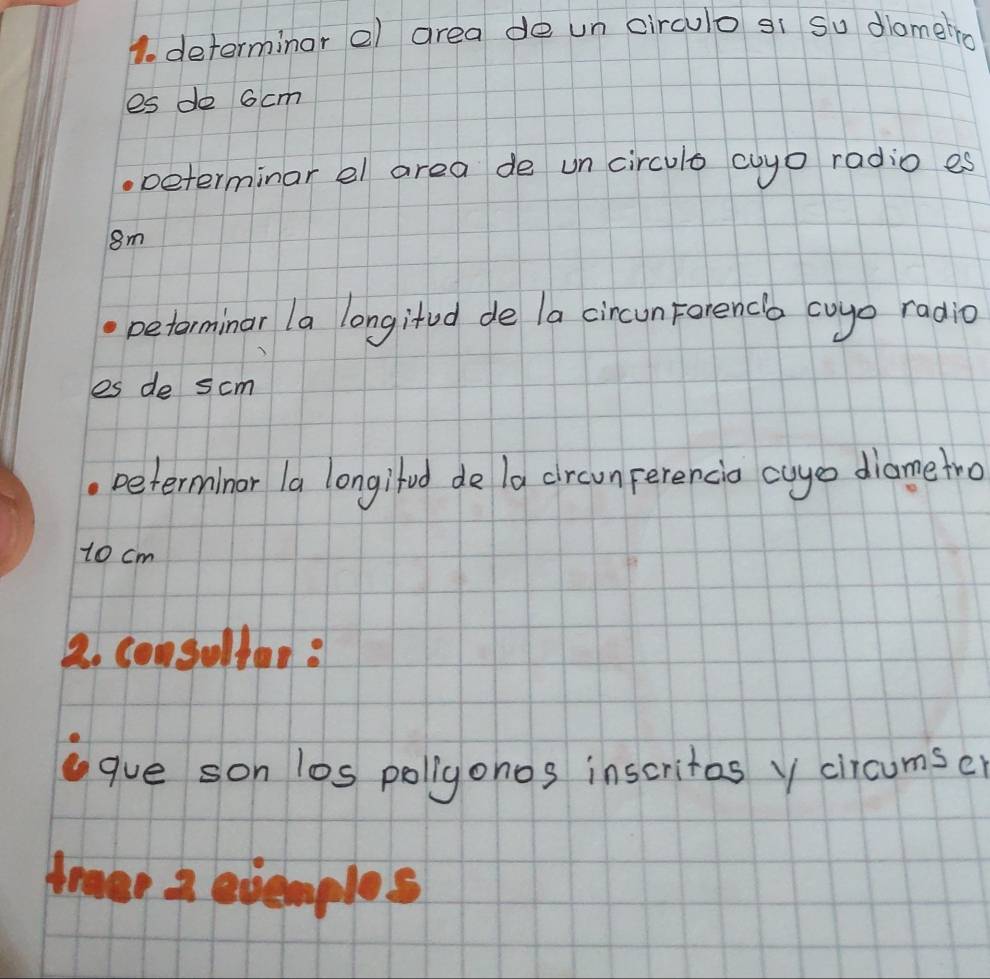 1. determinar el area de un circulo si su diametro
es de 6cm
• Determinar el area de un circulo cuyo radio es
8m
• Determinar la longitud de la circunFerencia cuyo radio
es de 5cm
• Determinar la longitud de la circunferencia cuyo diametro
10 cm
2. consultar:
¿que son los poligonos inscritos y circumscr
traer 2 ejemplos